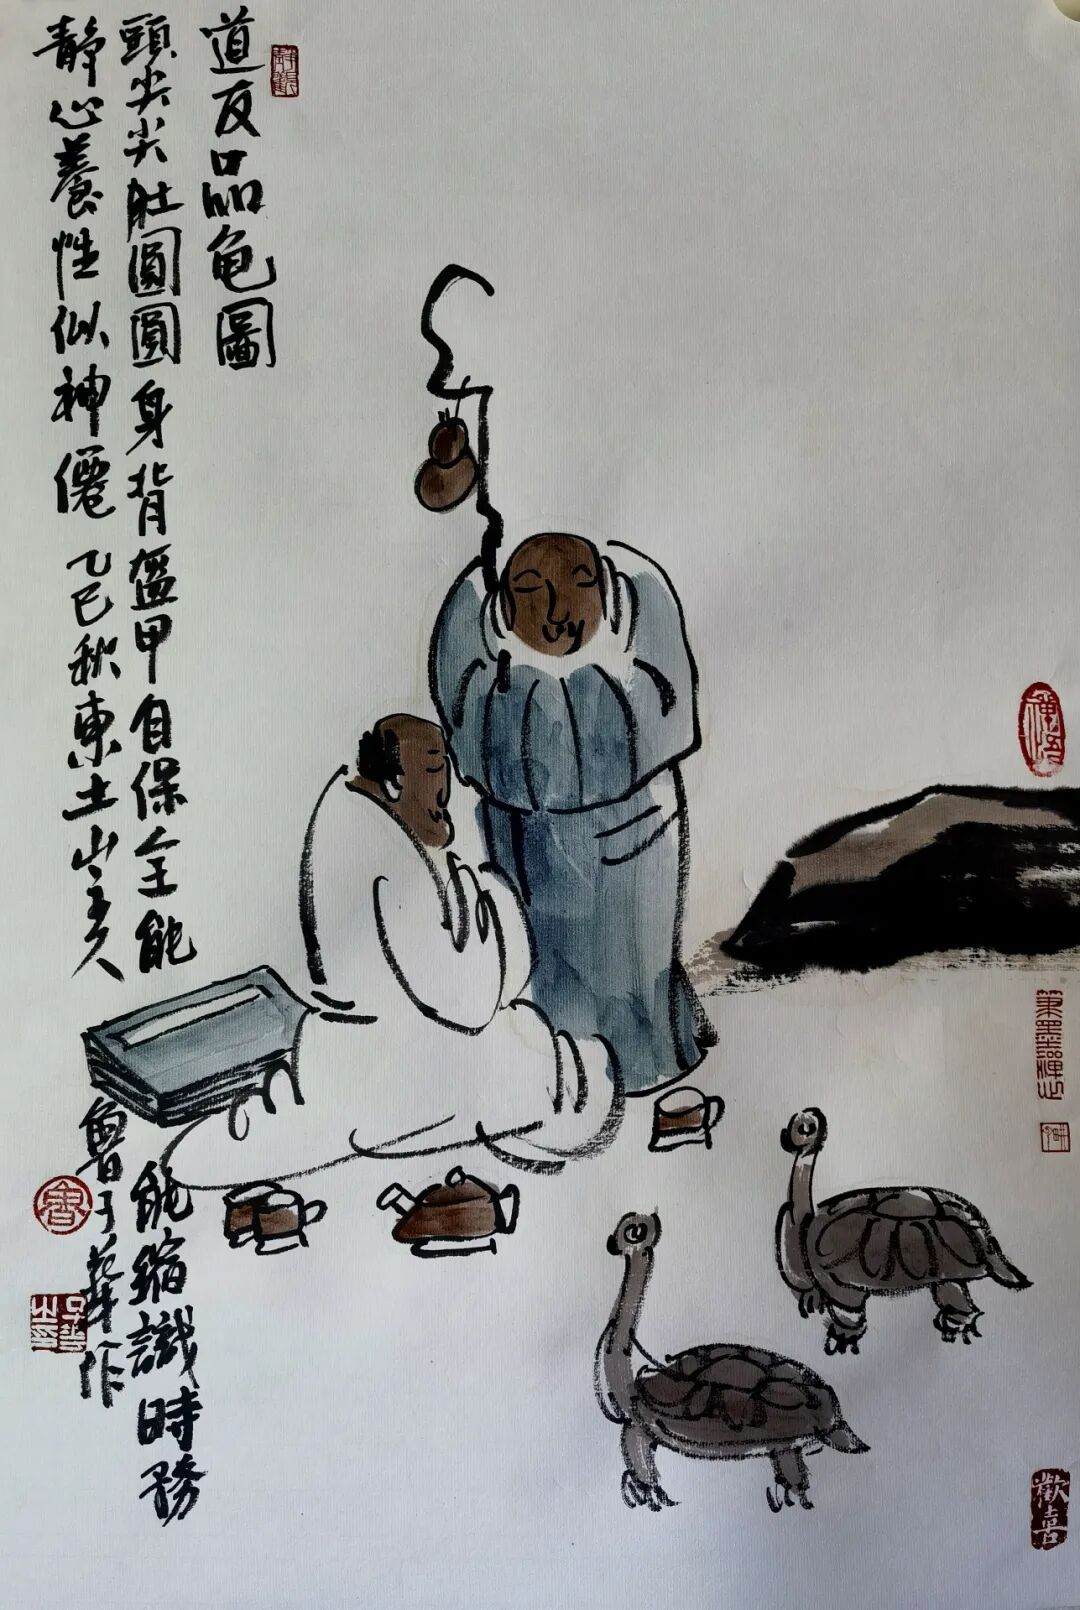 道友品龟圖
頭尖尖肚圓圓身背盔甲自保全能
能縮識時務
静心養性似神僊 乙巳秋東土山主人
魯子華作
禪悟
筆墨禪心
歡喜
魯